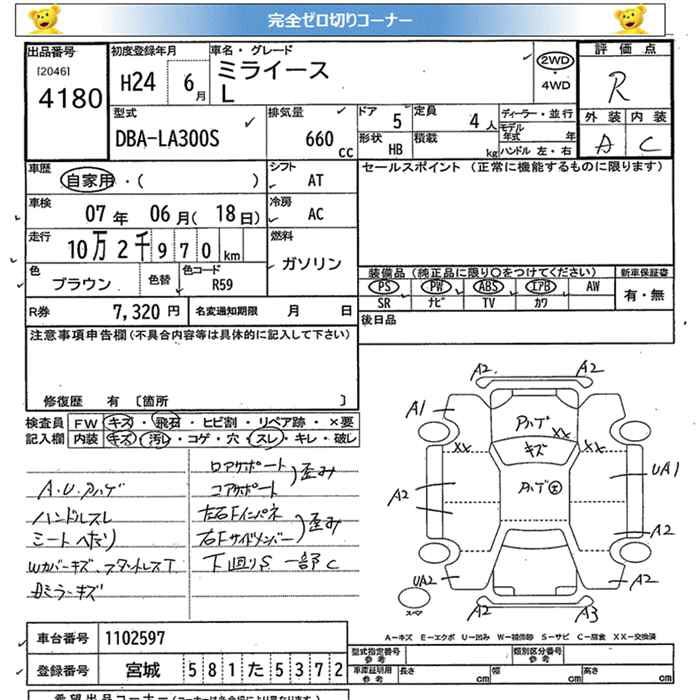 完全ゼロ切りコーナー
出品番号
[2046]
4180
初度登録年月
H24 6月
車名・グレード
ミライース
L
2WD
・
4WD
評価点
R
外装 内装
A C
型式
DBA-LA300S
排気量
660 cc
ドア 5
定員 4人
形状 HB
積載 kg
ディーラー・並行
モデル年式 年
ハンドル 左・右
車歴
自家用・( )
シフト
AT
セールスポイント (正常に機能するものに限ります)
車検
07年 06月(18日)
冷房
AC
走行
10万2千970km
燃料
ガソリン
色
ブラウン
色替
色コード
R59
装備品 (純正品に限り○をつけてください)
新車保証書
PS PW ABS エアB AW
SR ナビ TV カワ
有・無
R券 7,320円
名変通知期限 月 日
後日品
注意事項申告欄(不具合内容等は具体的に記入して下さい)
修復歴 有 [箇所 ]
検査員記入欄
FW キズ・飛石・ヒビ割・リペア跡・×要
内装 キズ・汚レ・コゲ・穴・スレ・キレ・破レ
A.U.ハゲ
ハンドルスレ
シートへたり
Wカバーキズ、
ミラーキズ
ロアサポート
コアサポート
歪み
左右Fインパネ
右Fサイドメンバー
歪み
下廻りS 一部C
A2 A2
A1 A2
XX XX
キズ
UA1
A2
A2
UA2 A2
A2 A3
スペア
A-キズ E-エクボ U-凹み W-補修跡 S-サビ C-腐食 XX-交換済
車台番号 1102597
登録番号 宮城 581た5372
型式指定番号 参考
類別区分番号 参考
車庫証明用 参考
長さ 幅 高さ
希望出品コーナー